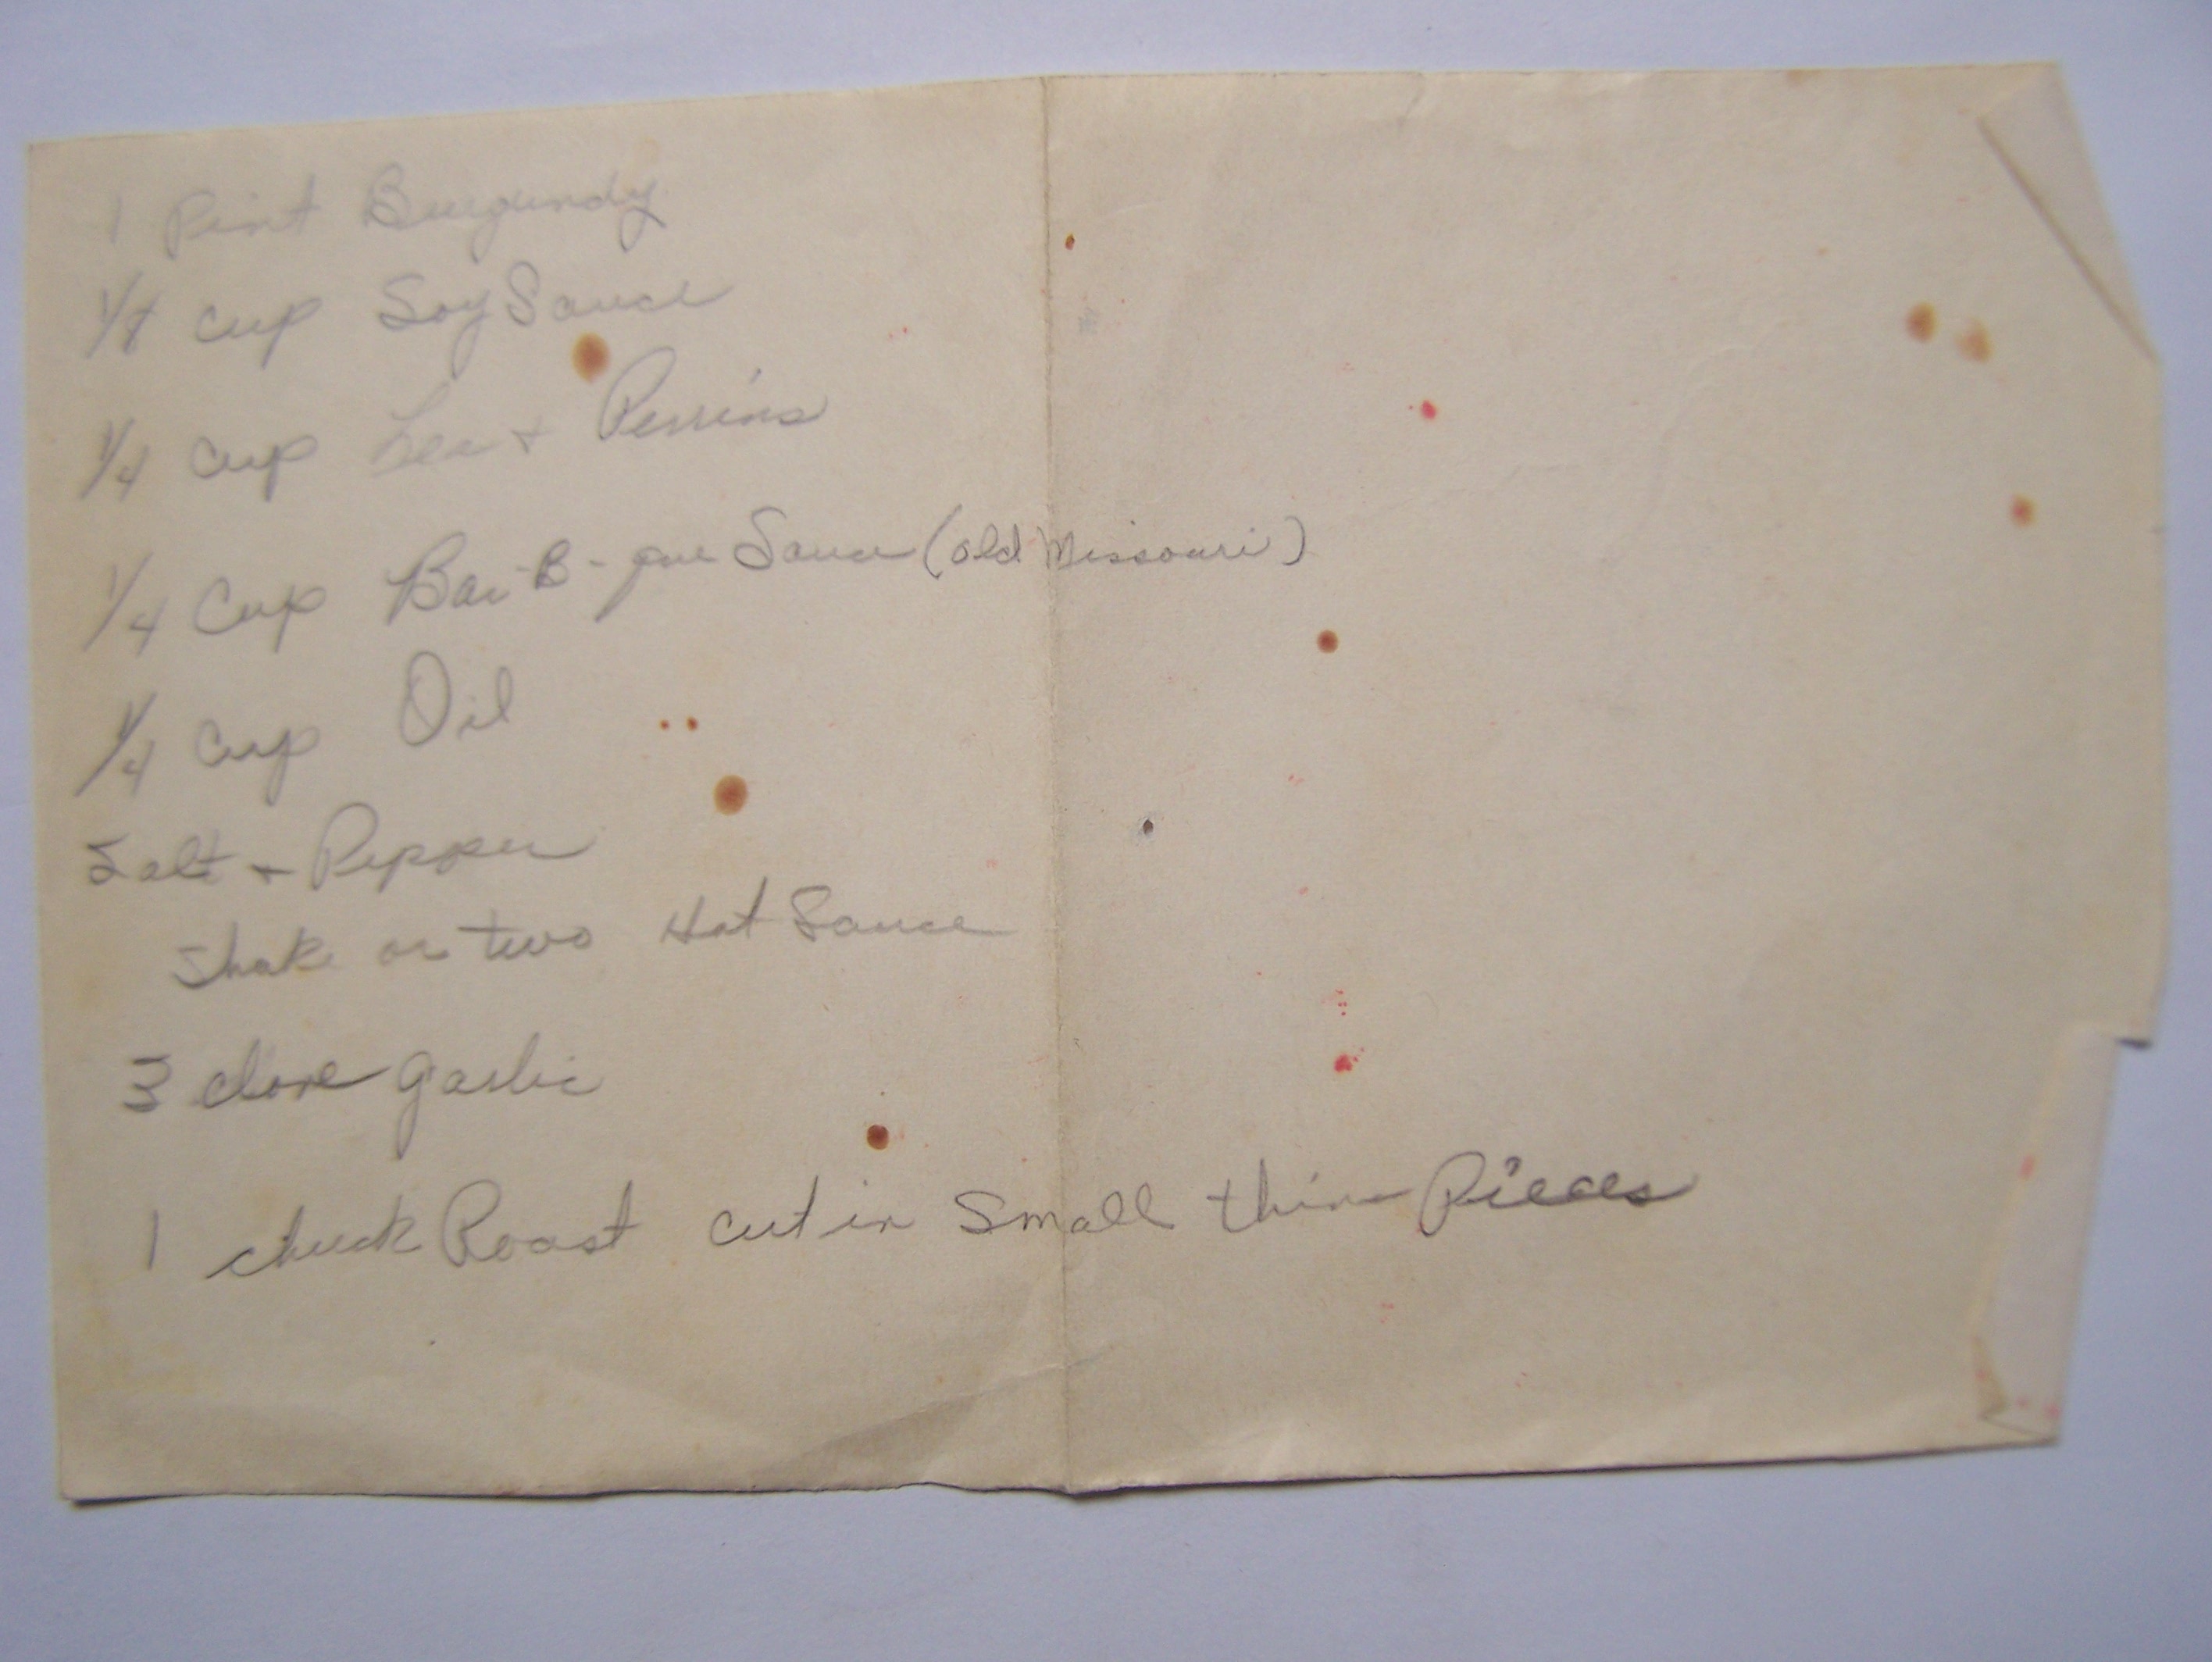 1 Pint Burgundy
1/4 cup Soy Sauce
1/4 cup Lea + Perrins
1/4 Cup Bar-B-que Sauce (old Missouri)
1/4 cup Oil
Salt + Pepper
Shake or two Hot Sauce
3 clove garlic
1 chuck Roast cut in Small thin Pieces